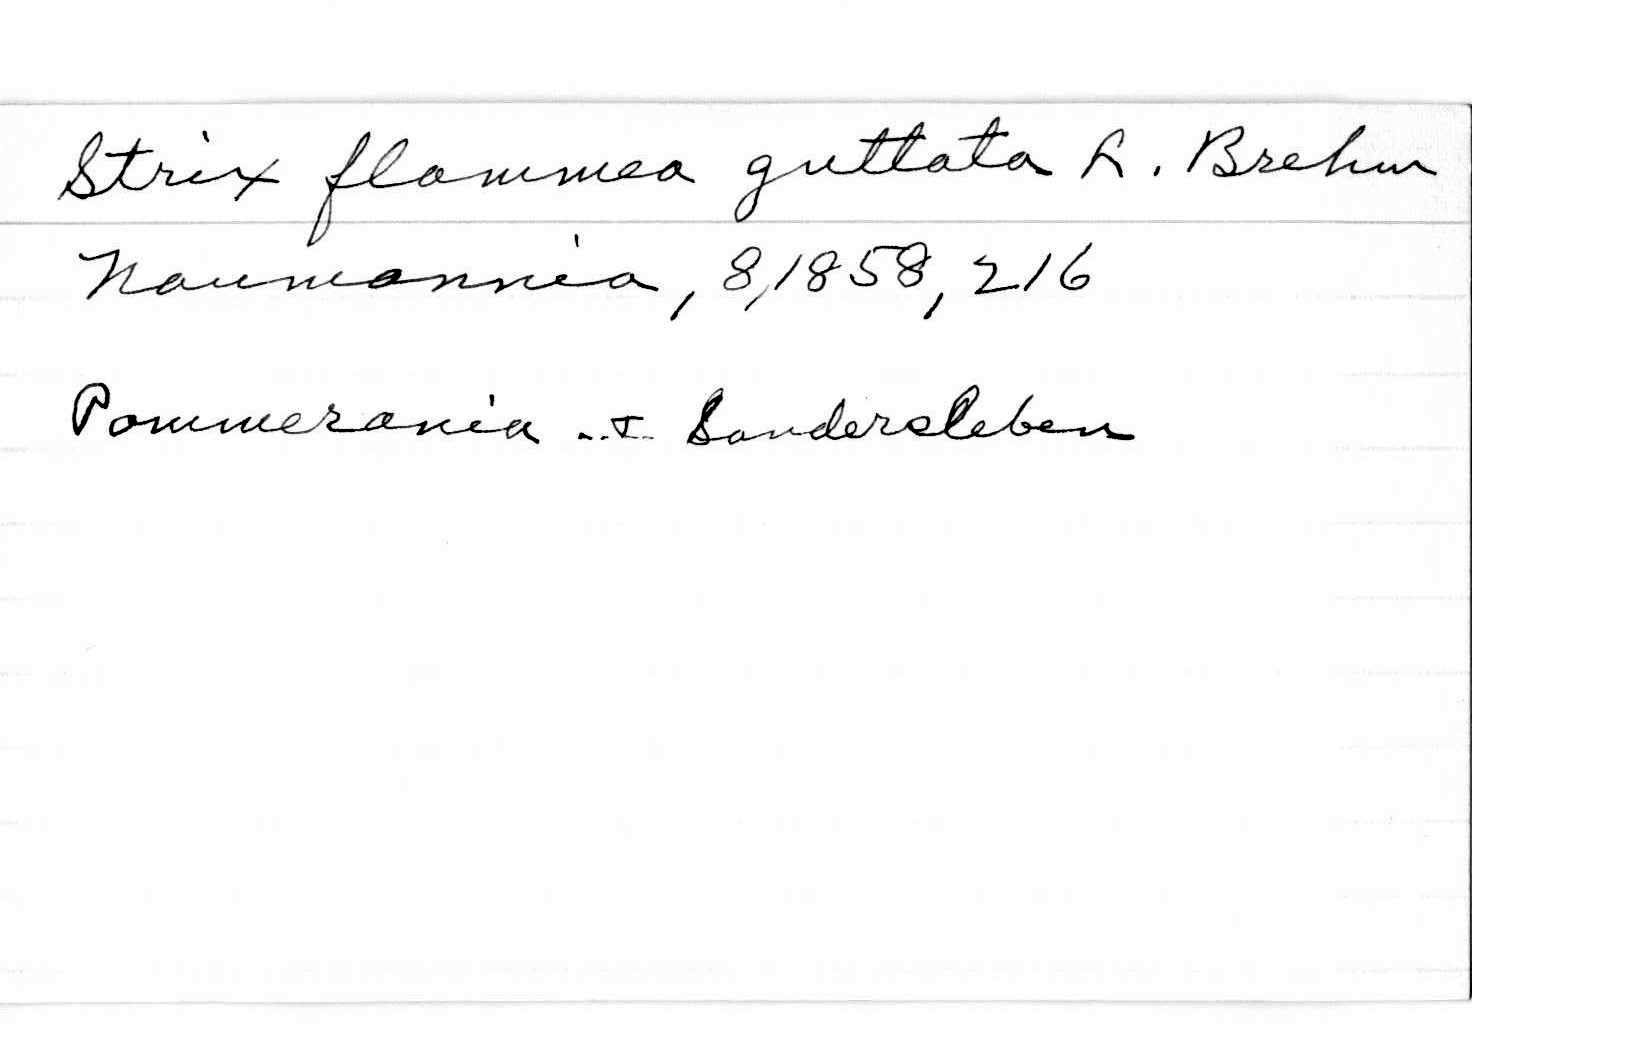 Strix flammea guttata L. Brehm
Naumannia, 8, 1858, 216
Pommerania & Sandersleben